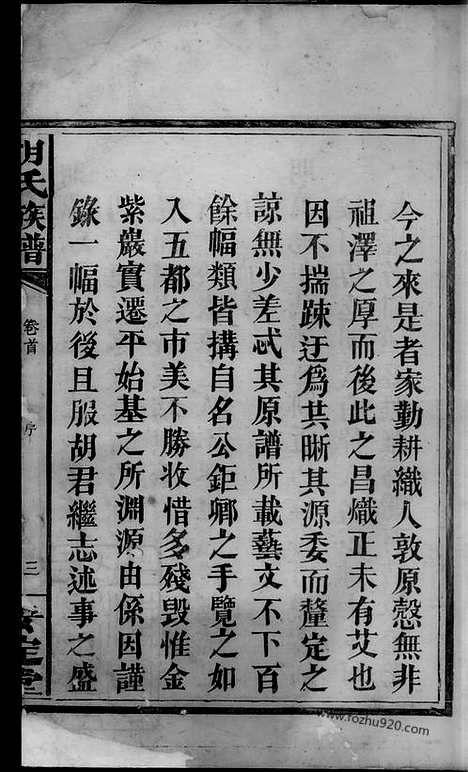 今之來是者家勤耕織人敦原愨無非
祖澤之厚而後此之昌熾正未有艾也
因不揣踈迂爲共晰其源委而釐定之
諒無少差忒其原譜所載藝文不下百
餘幅類皆搆自名公鉅卿之手覽之如
入五都之市美不勝收惜多殘毁惟金
紫巖實遷平始基之所淵源由係因謹
錄一幅於後且服胡君繼志述事之盛
胡氏族譜
卷首
序
三
安定堂
www.fozhu920.com